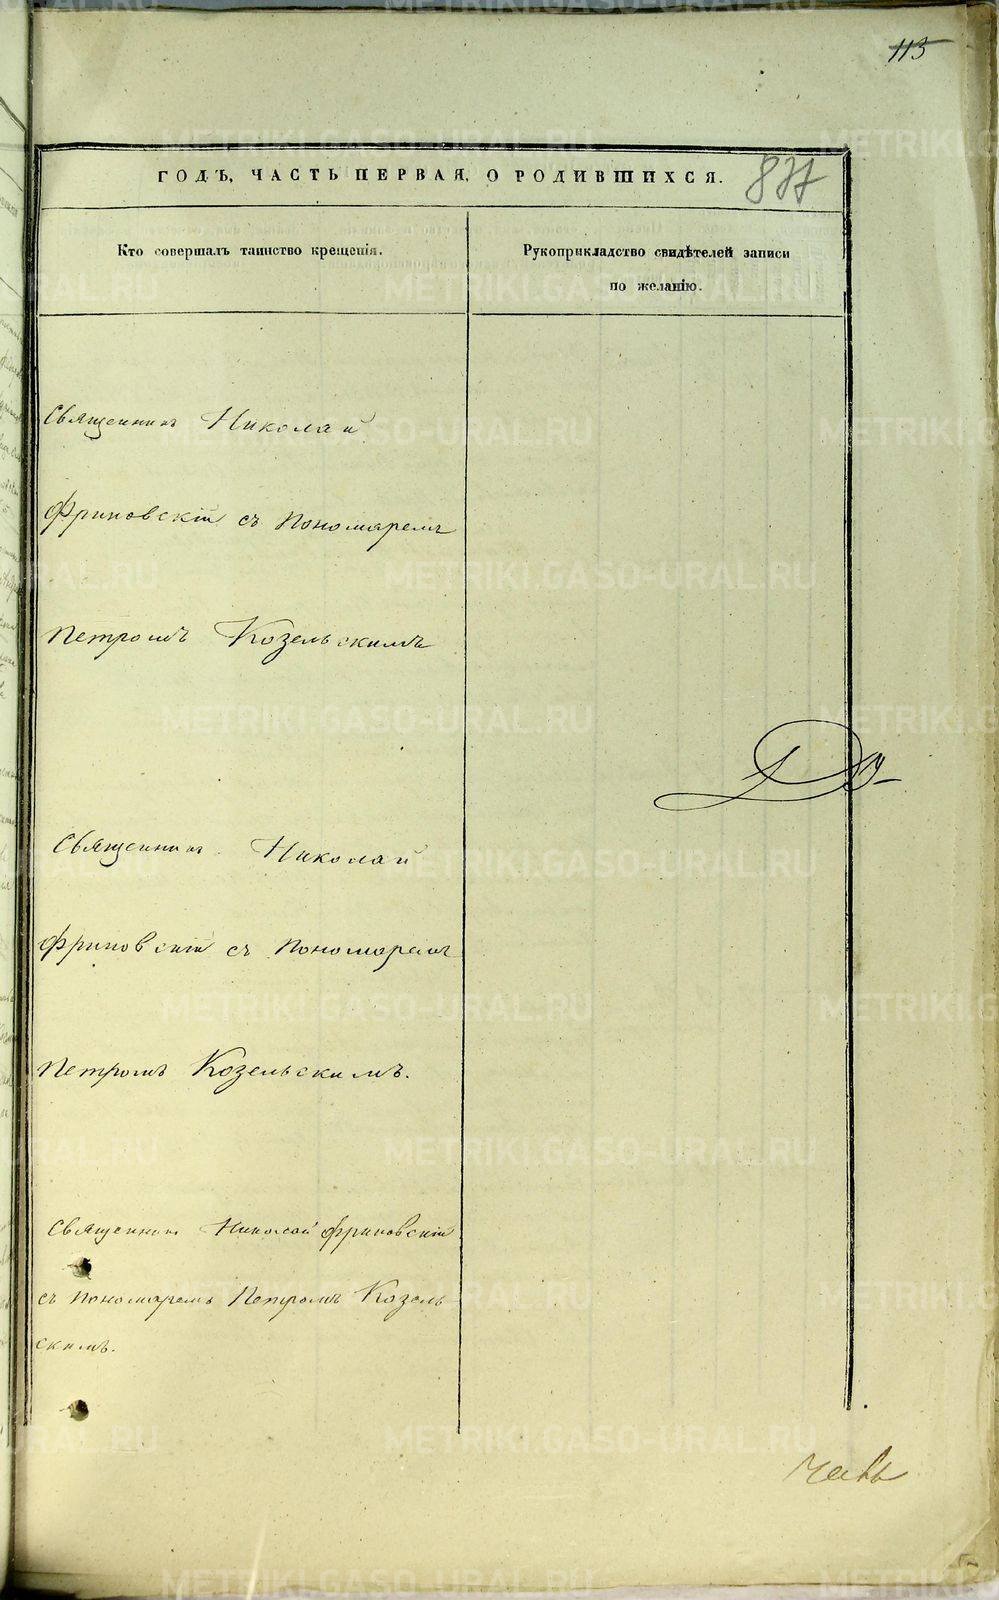 113
ГОДЪ, ЧАСТЬ ПЕРВАЯ, О РОДИВШИХСЯ.
837
Кто совершалъ таинство крещенія.
Рукоприкладство свидѣтелей записи
по желанію.
Священникъ Николай
Фриновскій съ Пономаремъ
Петромъ Козельскимъ
Священникъ Николай
Фриновскій съ Пономаремъ
Петромъ Козельскимъ.
Священникъ Николай Фриновскій
съ Пономаремъ Петромъ Козель
скимъ.
METRIKI.GASO-URAL.RU